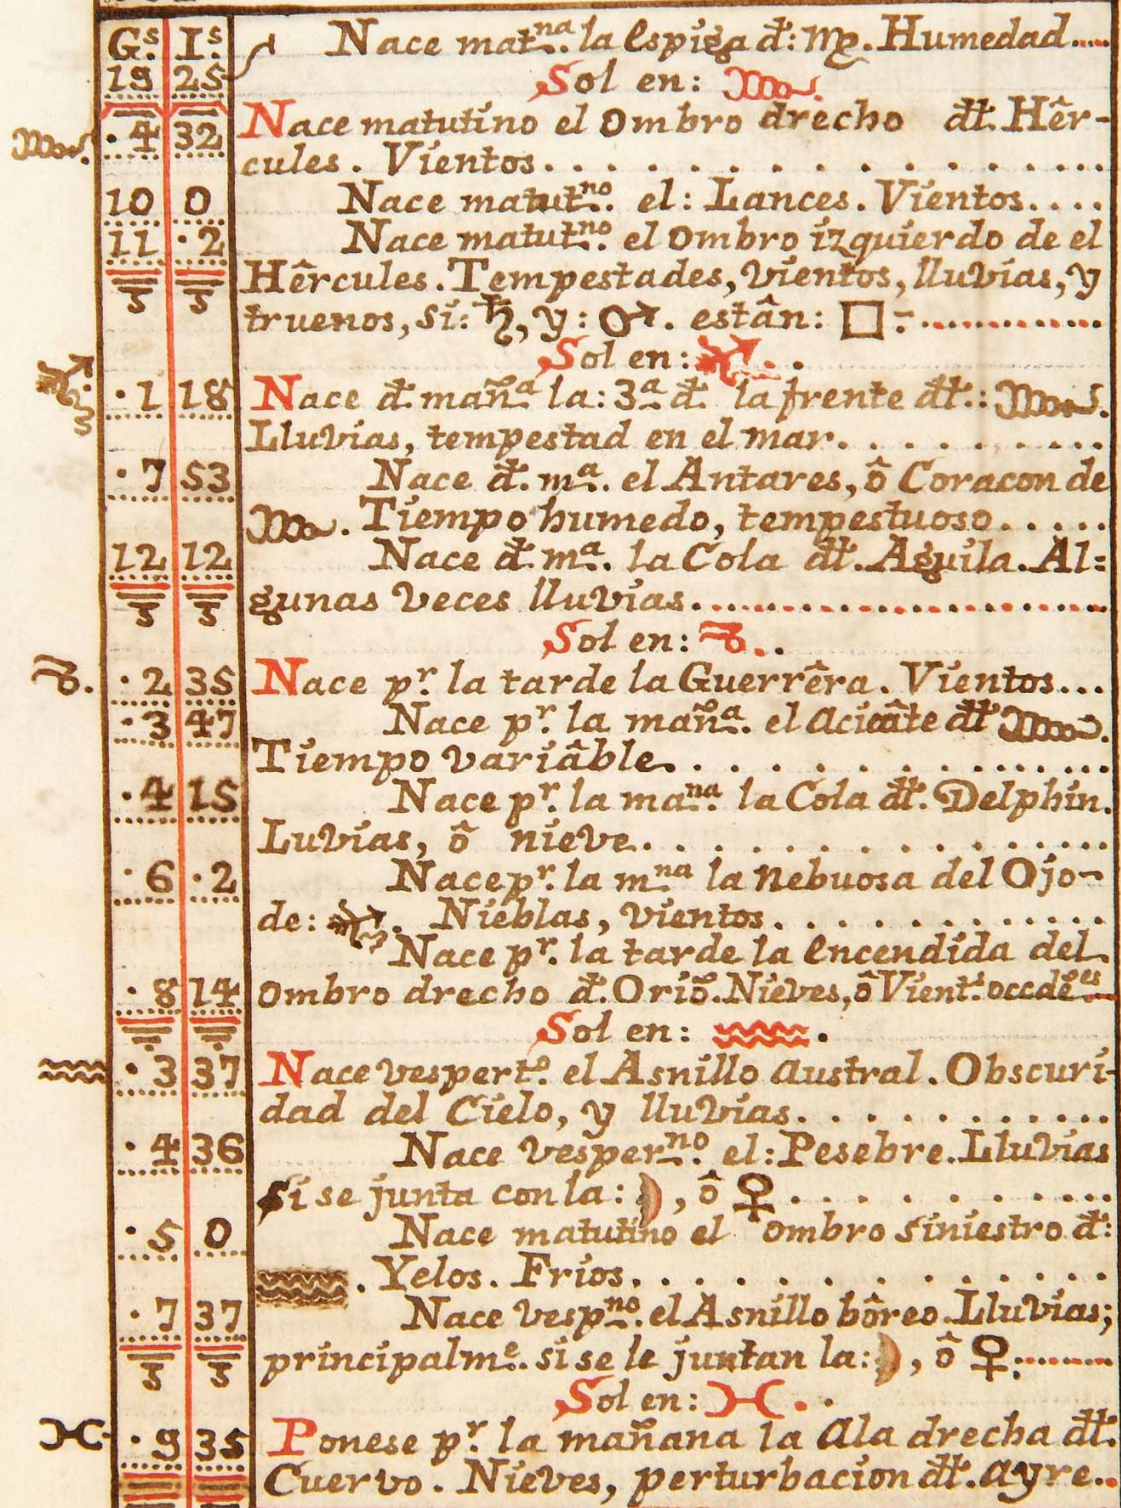 G.s I.s Nace mat.na la Espiga đ: ♍. Humedad....
19 25 Sol en: ♏.
♏. ·4 32 Nace matutino el Ombro drecho đt. Hêr-
cules. Vientos.
10 0 Nace matut.no el: Lances. Vientos....
11 ·2 Nace matut.no el Ombro izquierdo de el
Hêrcules. Tempestades, vientos, lluvias, y
5 5 truenos, si: ♄, y: ♂. estân: □:
Sol en: ♐.
♐ ·1 18 Nace đ. mañ.a la: 3.a đ. la frente đt.: ♏.
Lluvias, tempestad en el mar.
·7 53 Nace đ. m.a el Antares, ô Coracon de
♏. Tiempo humedo, tempestuoso.
12 12 Nace đ. m.a la Cola đt. Aguila. Al:
5 5 gunas veces lluvias.
Sol en: ♑.
♑. ·2 35 Nace p.r la tarde la Guerrêra. Vientos...
·3 47 Nace p.r la mañ.a el aciâte đt ♏.
Tiempo variâble.
·4 15 Nace p.r la ma.na la Cola đt. Delphin.
Luvias, ô nieve.
·6 ·2 Nace p.r la m.na la Nebuosa del Ojo-
de: ♐. Nieblas, vientos.
Nace p.r la tarde la Encendida del
·8 14 Ombro drecho đ. Oriõ. Nieves, ô Vient.s occdẽ.es
Sol en: ♒.
♒ ·3 37 Nace vespert.o el Asnillo Austral. Obscuri-
dad del Cielo, y lluvias.
·4 36 Nace vesper.no el: Pesebre. Lluvias
si se junta con la: ☽, ô ♀.
·5 0 Nace matutino el ombro siniestro đ:
♒. Yelos. Frios.
·7 37 Nace vesp.no el Asnillo bôreo. Lluvias;
5 5 principalm.e si se le juntan la: ☽, ô ♀:
Sol en: ♓.
♓ ·9 35 Ponese p.r la mañana la Ala drecha đt.
Cuervo. Nieves, perturbacion đt. ayre..